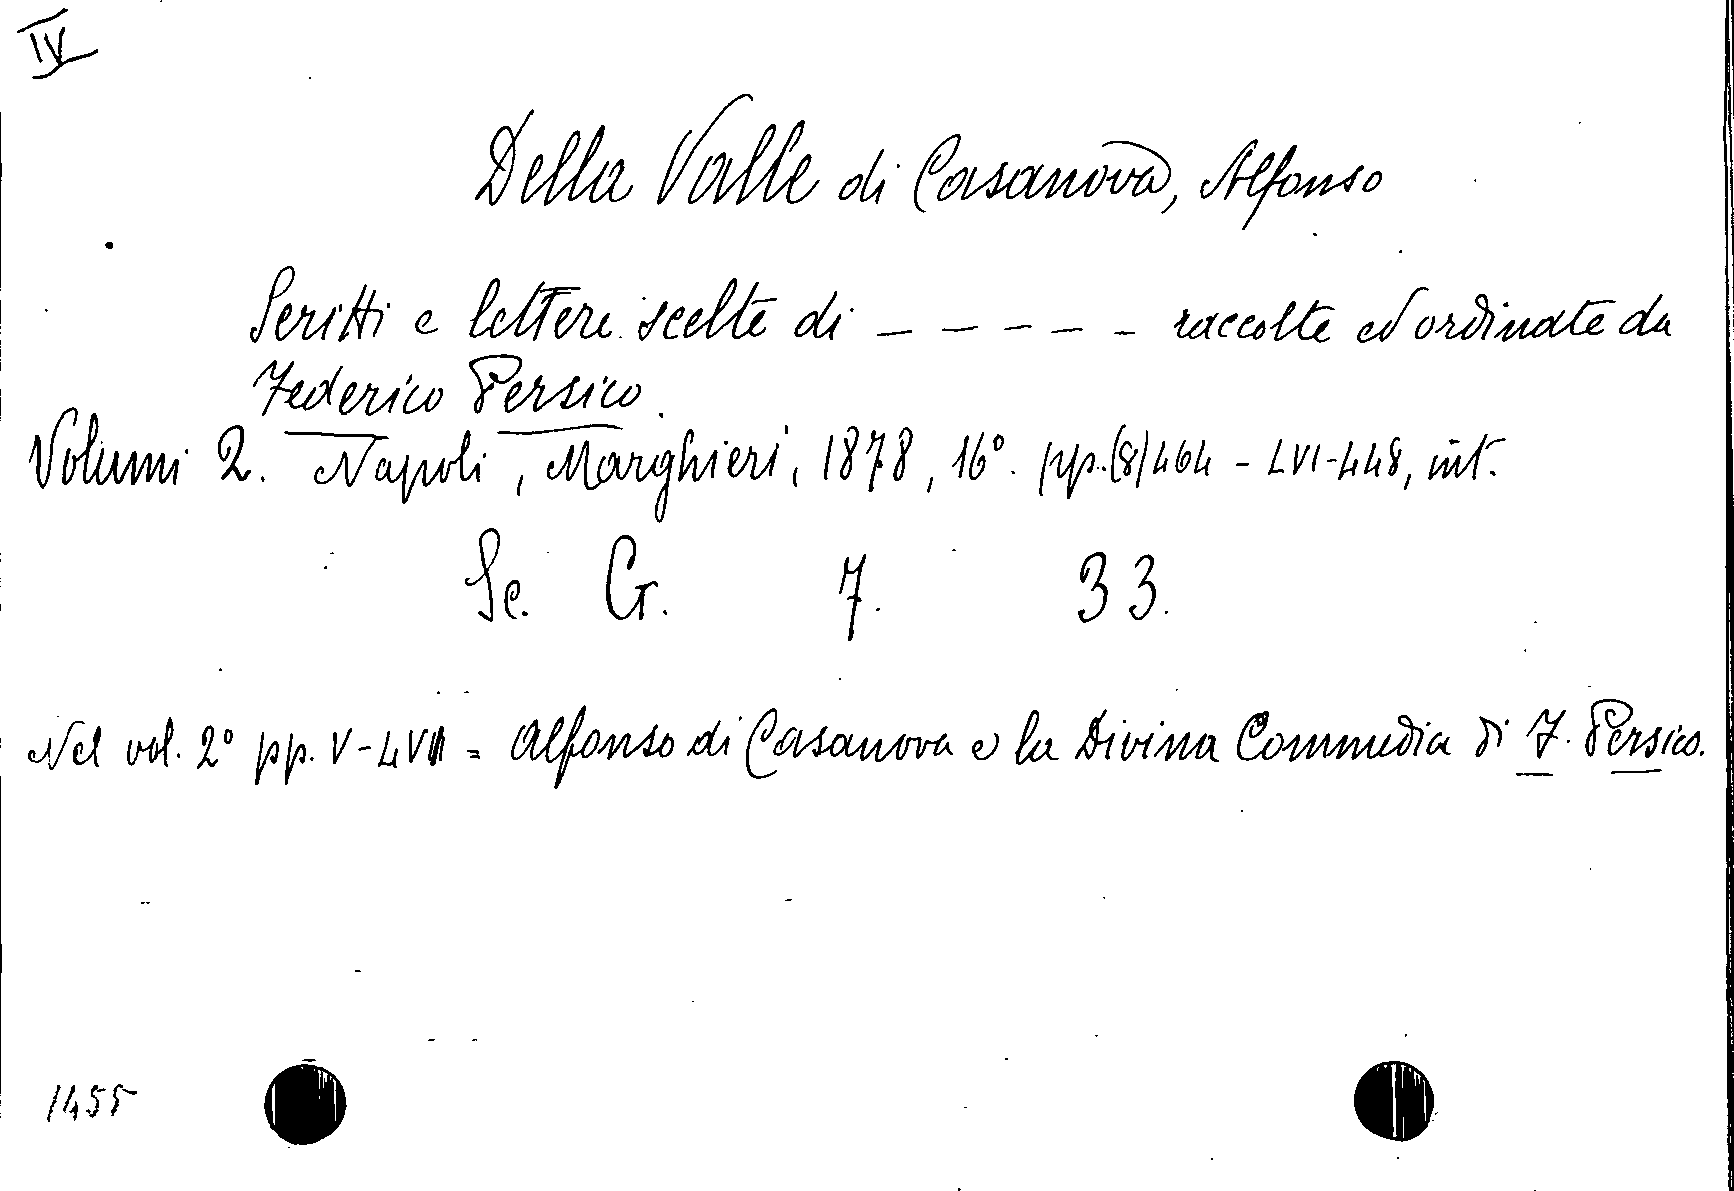 IV
Della Valle di Casanova, Alfonso
Scritti e lettere scelte di – – – – – raccolte ed ordinate da
Federico Persico.
Volumi 2. Napoli, Margheri, 1878, 16°. pp. (8) 464 - LVI-448, int.
Sc. Cr. 7. 33.
Nel vol. 2° pp. V-LVI = Alfonso di Casanova e la Divina Commedia di F. Persico.
1455